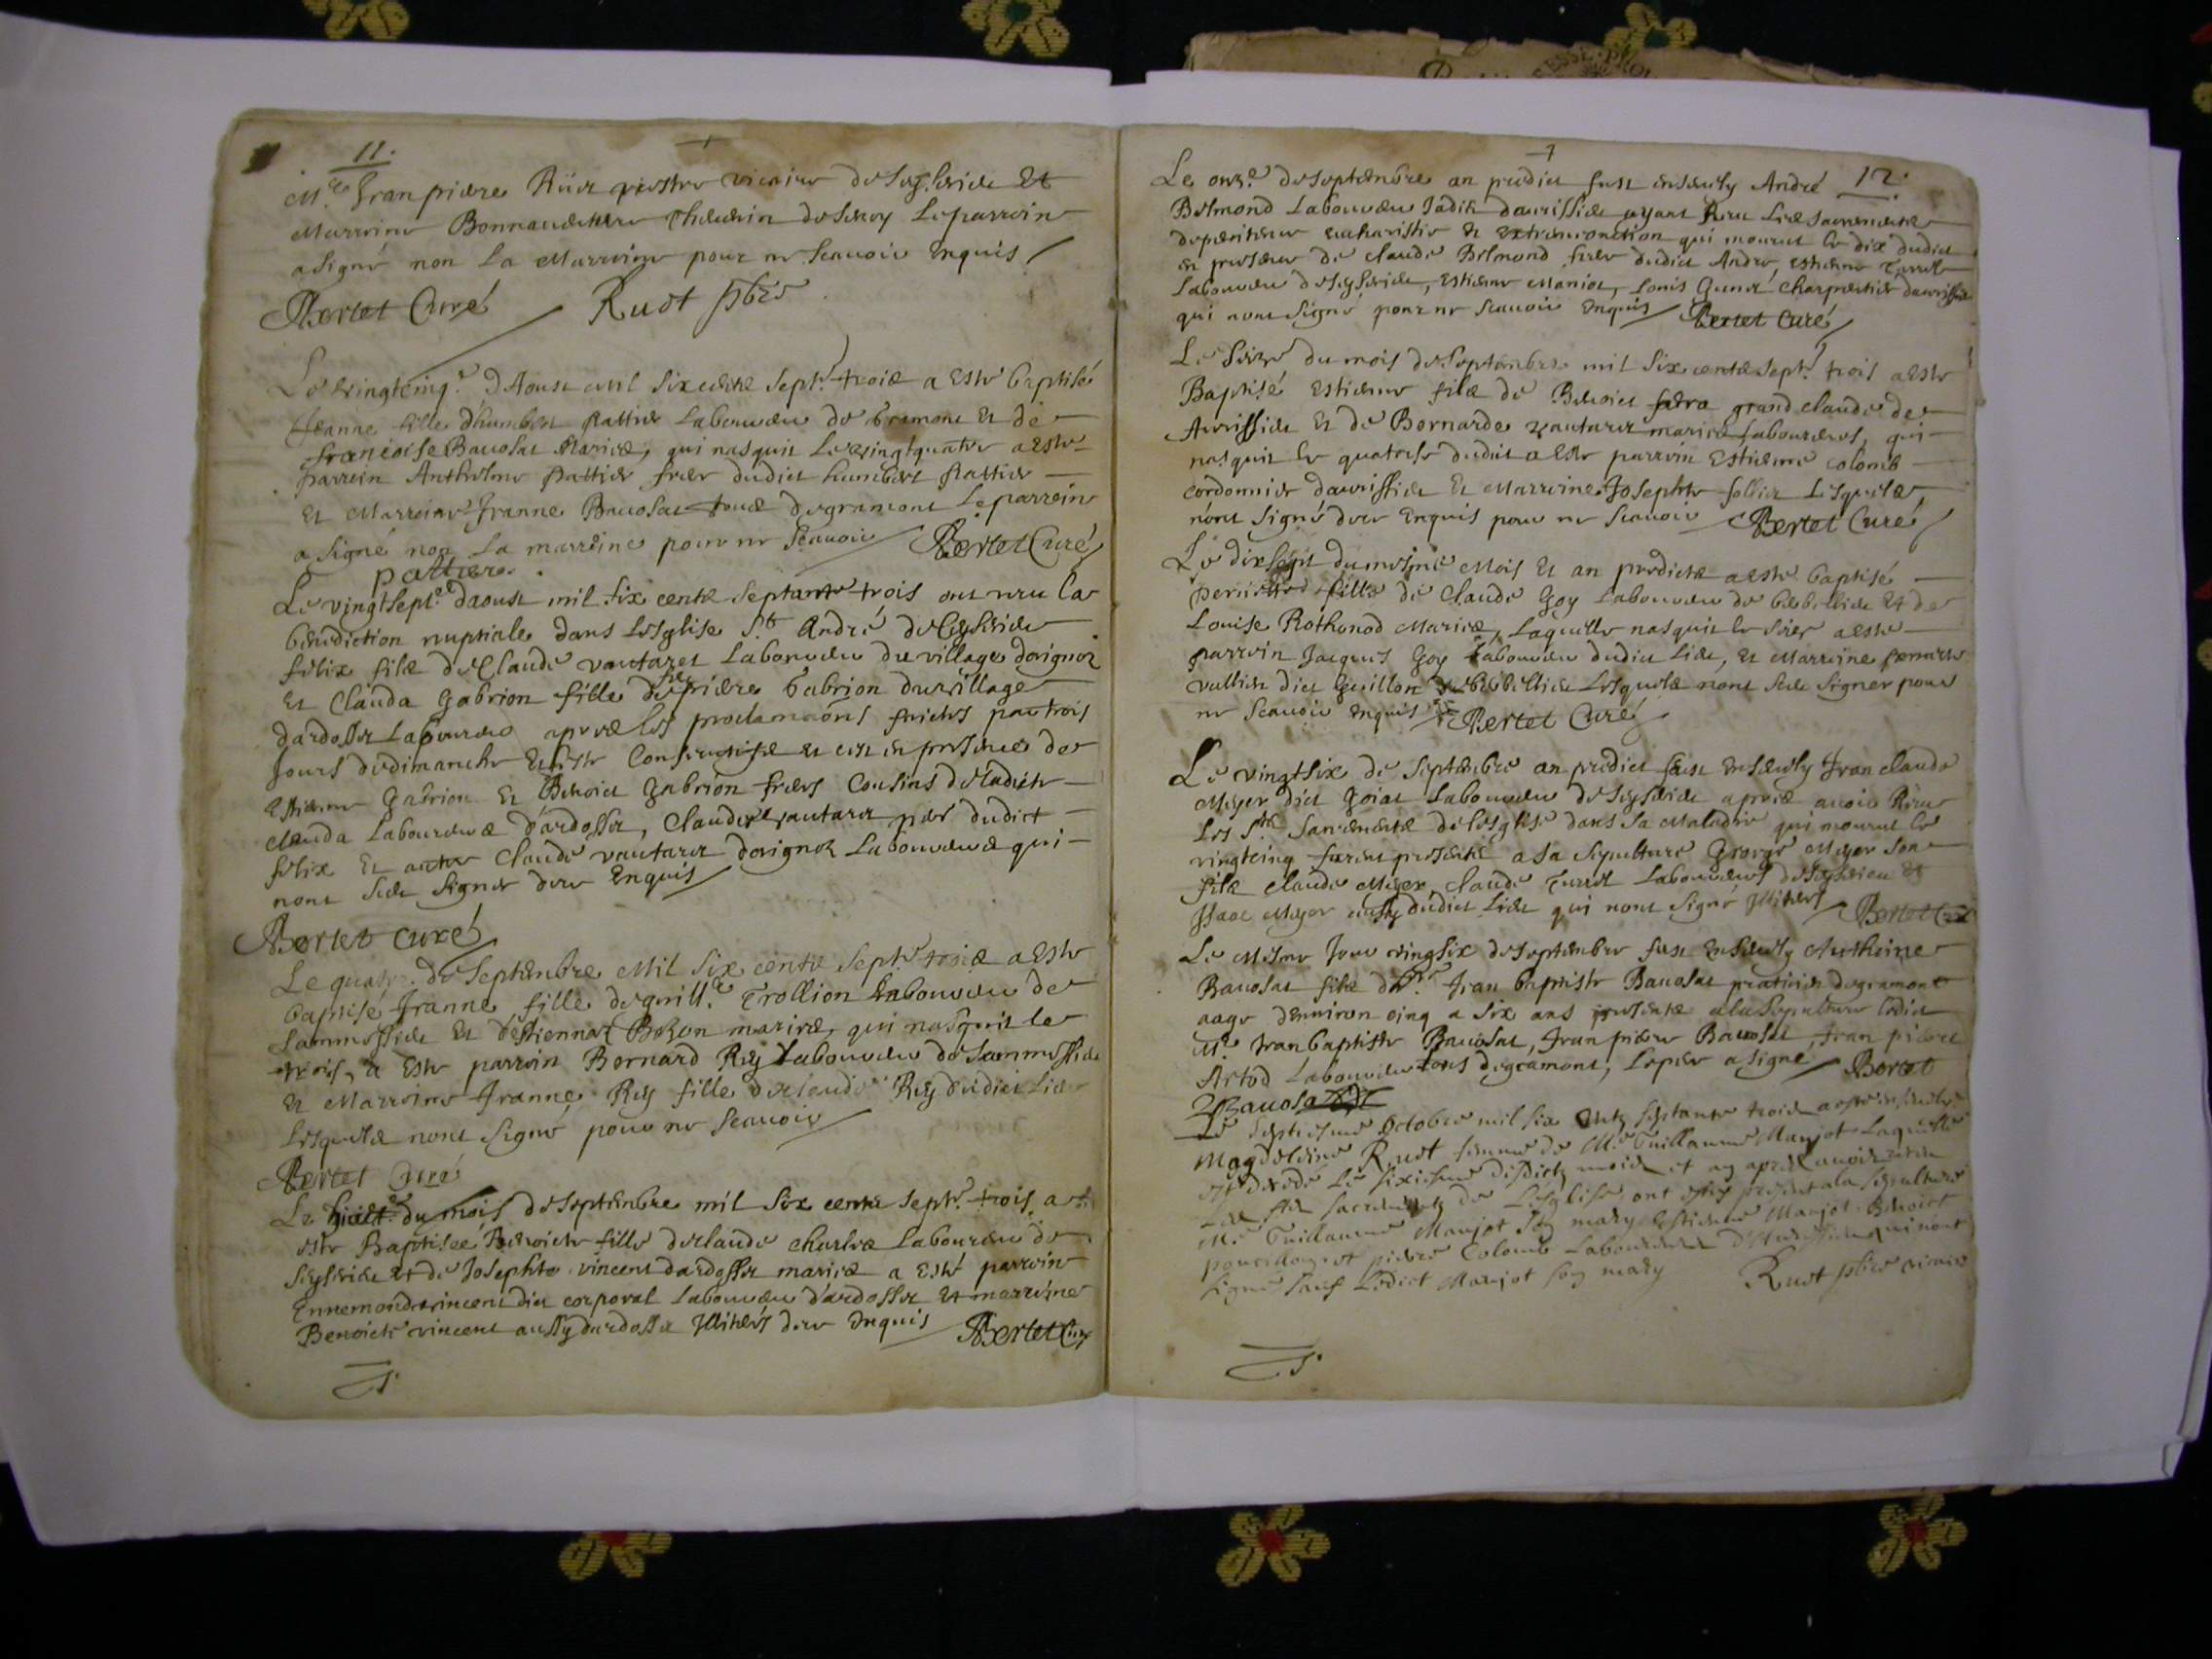 11.
M.re Jean pierre Rüet prestre vicaire de Seyserieu Et
Marreine Bonnaventure de Seroy Le parrein
a signé non La Marreine pour ne scavoir Enquis
Bertet Curé Ruet pbre
Le vingtcinq.e d'Aoust mil six cents sept.te trois a Esté baptisé
Jeanne fille d'humbert Pattier Laboureur de Gramont et de
francoise Bavosat Mariez, qui nasquit Le vingtquatre a esté
parrein Anthelme pattier frere dudict humbert Pattier
Et Marreine Jeanne Bavosat tous de gramont Le parrein
a signé non La marreine pour ne scavoir Bertet Curé
pattier
Le vingtsept.e daoust mil six cents septante trois ont receu la
benediction nuptiale dans Lesglise S.t André de Ceyserieu
felix filz de Claude vautaret Laboureur du village davignoz
Et Clauda Gabrion fille de feu pierre Gabrion du village
dardosset Laboureurs apres les proclamaõns faictes par trois
Jours de dimanche Et en presence de
Estienne Gabrion Et Benoict Gabrion freres Cousins de ladicte
Clauda Laboureurs d'ardosset, Claude vautaret pere dudict
felix Et autre Claude vautaret davignoz Laboureurs qui
nont sceu signer de ce Enquis
Bertet curé
Le quatre de Septembre Mil six cents sept.te trois a Esté
baptisé Jeanne fille de guill.e Trollion Laboureur de
Lammessieu Et d'Estiennaz Bozon mariez, qui nasquit le
trois, a Esté parrein Bernard Rey Laboureur de Lammessieu
Et Marreine Jeanne Rey fille de claude Rey dudict Lieu
Lesquelz nont signé pour ne scavoir
Bertet Curé
Le huict.e du mois de septembre mil six cents sept.te trois, a
esté Baptiseé Benoicte fille de claude charlez Laboureur de
Seyserieu Et de Josephte vincent dardosset mariez a Esté parrein
Ennemond vincent dict corporal Laboureur d'ardosset Et marreine
Benoicte vincent aussy dardosset Illiteres de ce Enquis Bertet Curé
12.
Le onz.e de septembre an predict fust ensevely André
Belmond Laboureur Jadis davrissieu ayant Receu Les sacrements
de penitence eucharistie et extremonction qui mourut le dix dudict
en presence de claude Belmond frere dudict André, Estienne
Laboureur de Seyserieu, Estienne Maniot, Louis Gunet charpentier davrissieu
qui nont signé pour ne scavoir Enquis Bertet Curé
Le seize du mois de septembre mil six cents sept.te trois a esté
Baptisé Estienne filz de Benoict grand claude de
Avrissieu Et de Bernarde vautaret mariez Laboureurs, qui
nasquit le quatorse dudict a Esté parrein Estienne colomb
cordonnier davrissieu Et Marreine Josephte Lesquelz
nont signé de ce Enquis pour ne scavoir Bertet Curé
Le dixsept du mesme Mois Et an predicts a esté baptisé
fille de Claude Goy Laboureur de Et de
Louise Rothonod Mariez, Laquelle nasquit le seize a esté
parrein Jacques Goy Laboureur dudict Lieu, Et Marreine
vullier dict Guillon Lesquelz nont sceu signer pour
ne scavoir Enquis Bertet Curé
Le vingtsix de septembre an predict fust ensevely Jean claude
Meyer dict Goiat Laboureur de Seyserieu apres avoir Receu
Les S.tz Sacrements de lesglise dans sa Maladie qui mourut le
vingtcinq furent presents a sa sepulture George Meyer son
filz Claude Meyer, Claude Laboureurs de Seyserieu Et
Isaac Meyer aussy dudict Lieu qui nont signé Illiteres Bertet Curé
Le Mesme Jour vingsix de septembre fust Ensevely Antheine
Bavosat filz de M.re Jean baptiste Bavosat praticien de gramont
aagé denviron cinq a six ans presents a la sepulture ledict
M.re Jean baptiste Bavosat, Jean pierre Bavosat, Jean pierre
Artod Laboureur tous de gramont, Le pere a signé Bertet
Bavosat
Le septiesme octobre mil six cents septante trois a esté ensevelie
Magdeleine Ruet femme de M.e Guillaume Manjot Laquelle
est decedé Le sixiesme desdictz mois et an apres avoir receu
Les stz sacrements de Lesglise ont estés presents a la sepulture
M.e Guillaume Manjot son mary Estienne Manjot Benoict
et pierre Colomb Laboureurs qui nont
signé sauf Ledict Manjot son mary Ruet pbre vicaire